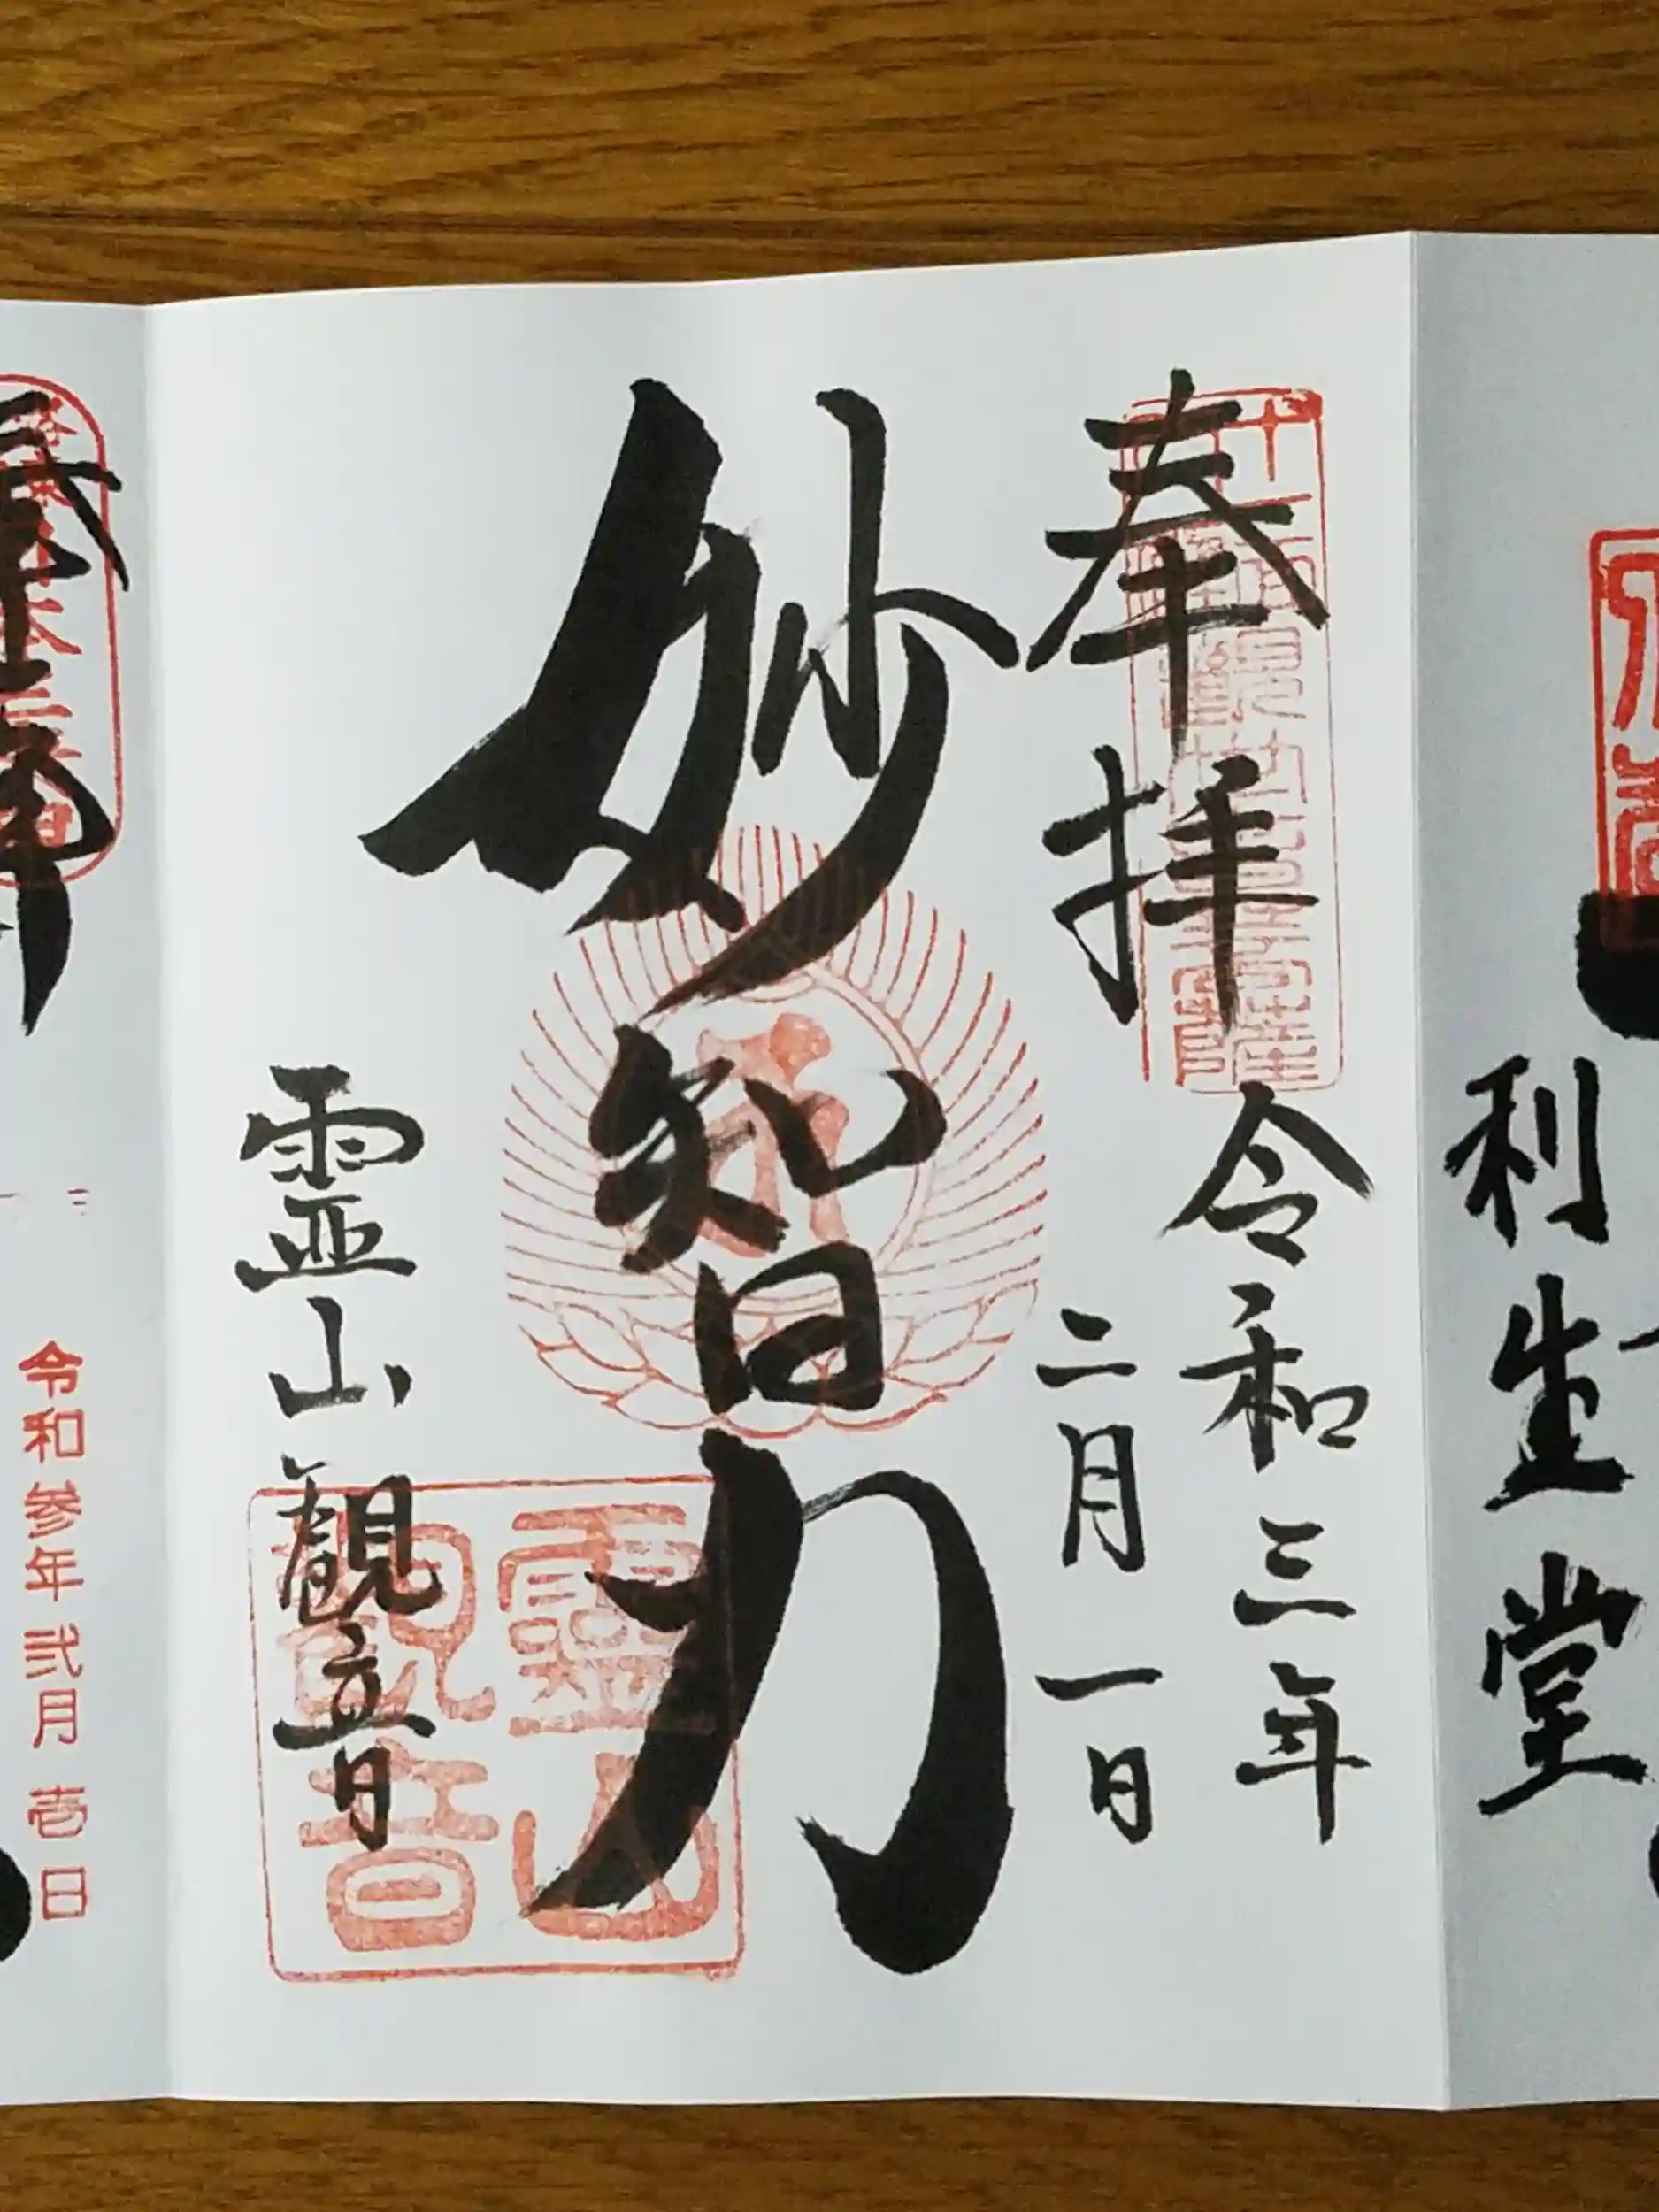 利生堂
奉拝
令和三年
二月一日
妙智力
霊山観音
霊山観音
令和参年弐月壱日